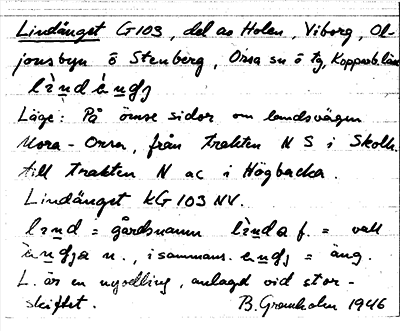 Lindänget G103, del av Holen, Viborg, Ol-
jonsbyn o Stenberg, Orsa sn o tg, Kopparb. län
Läge: På ömse sidor om landsvägen
Mora - Orsa, från trakten N S i Skolh.
till trakten N ac i Högbacka.
Lindänget KG 103 NV.
lınd = gårdsnamn lìnda f. = vall
n., i sammans. = äng.
L. är en nyodling, anlagd vid stor-
skiftet. B. Gramholm 1946